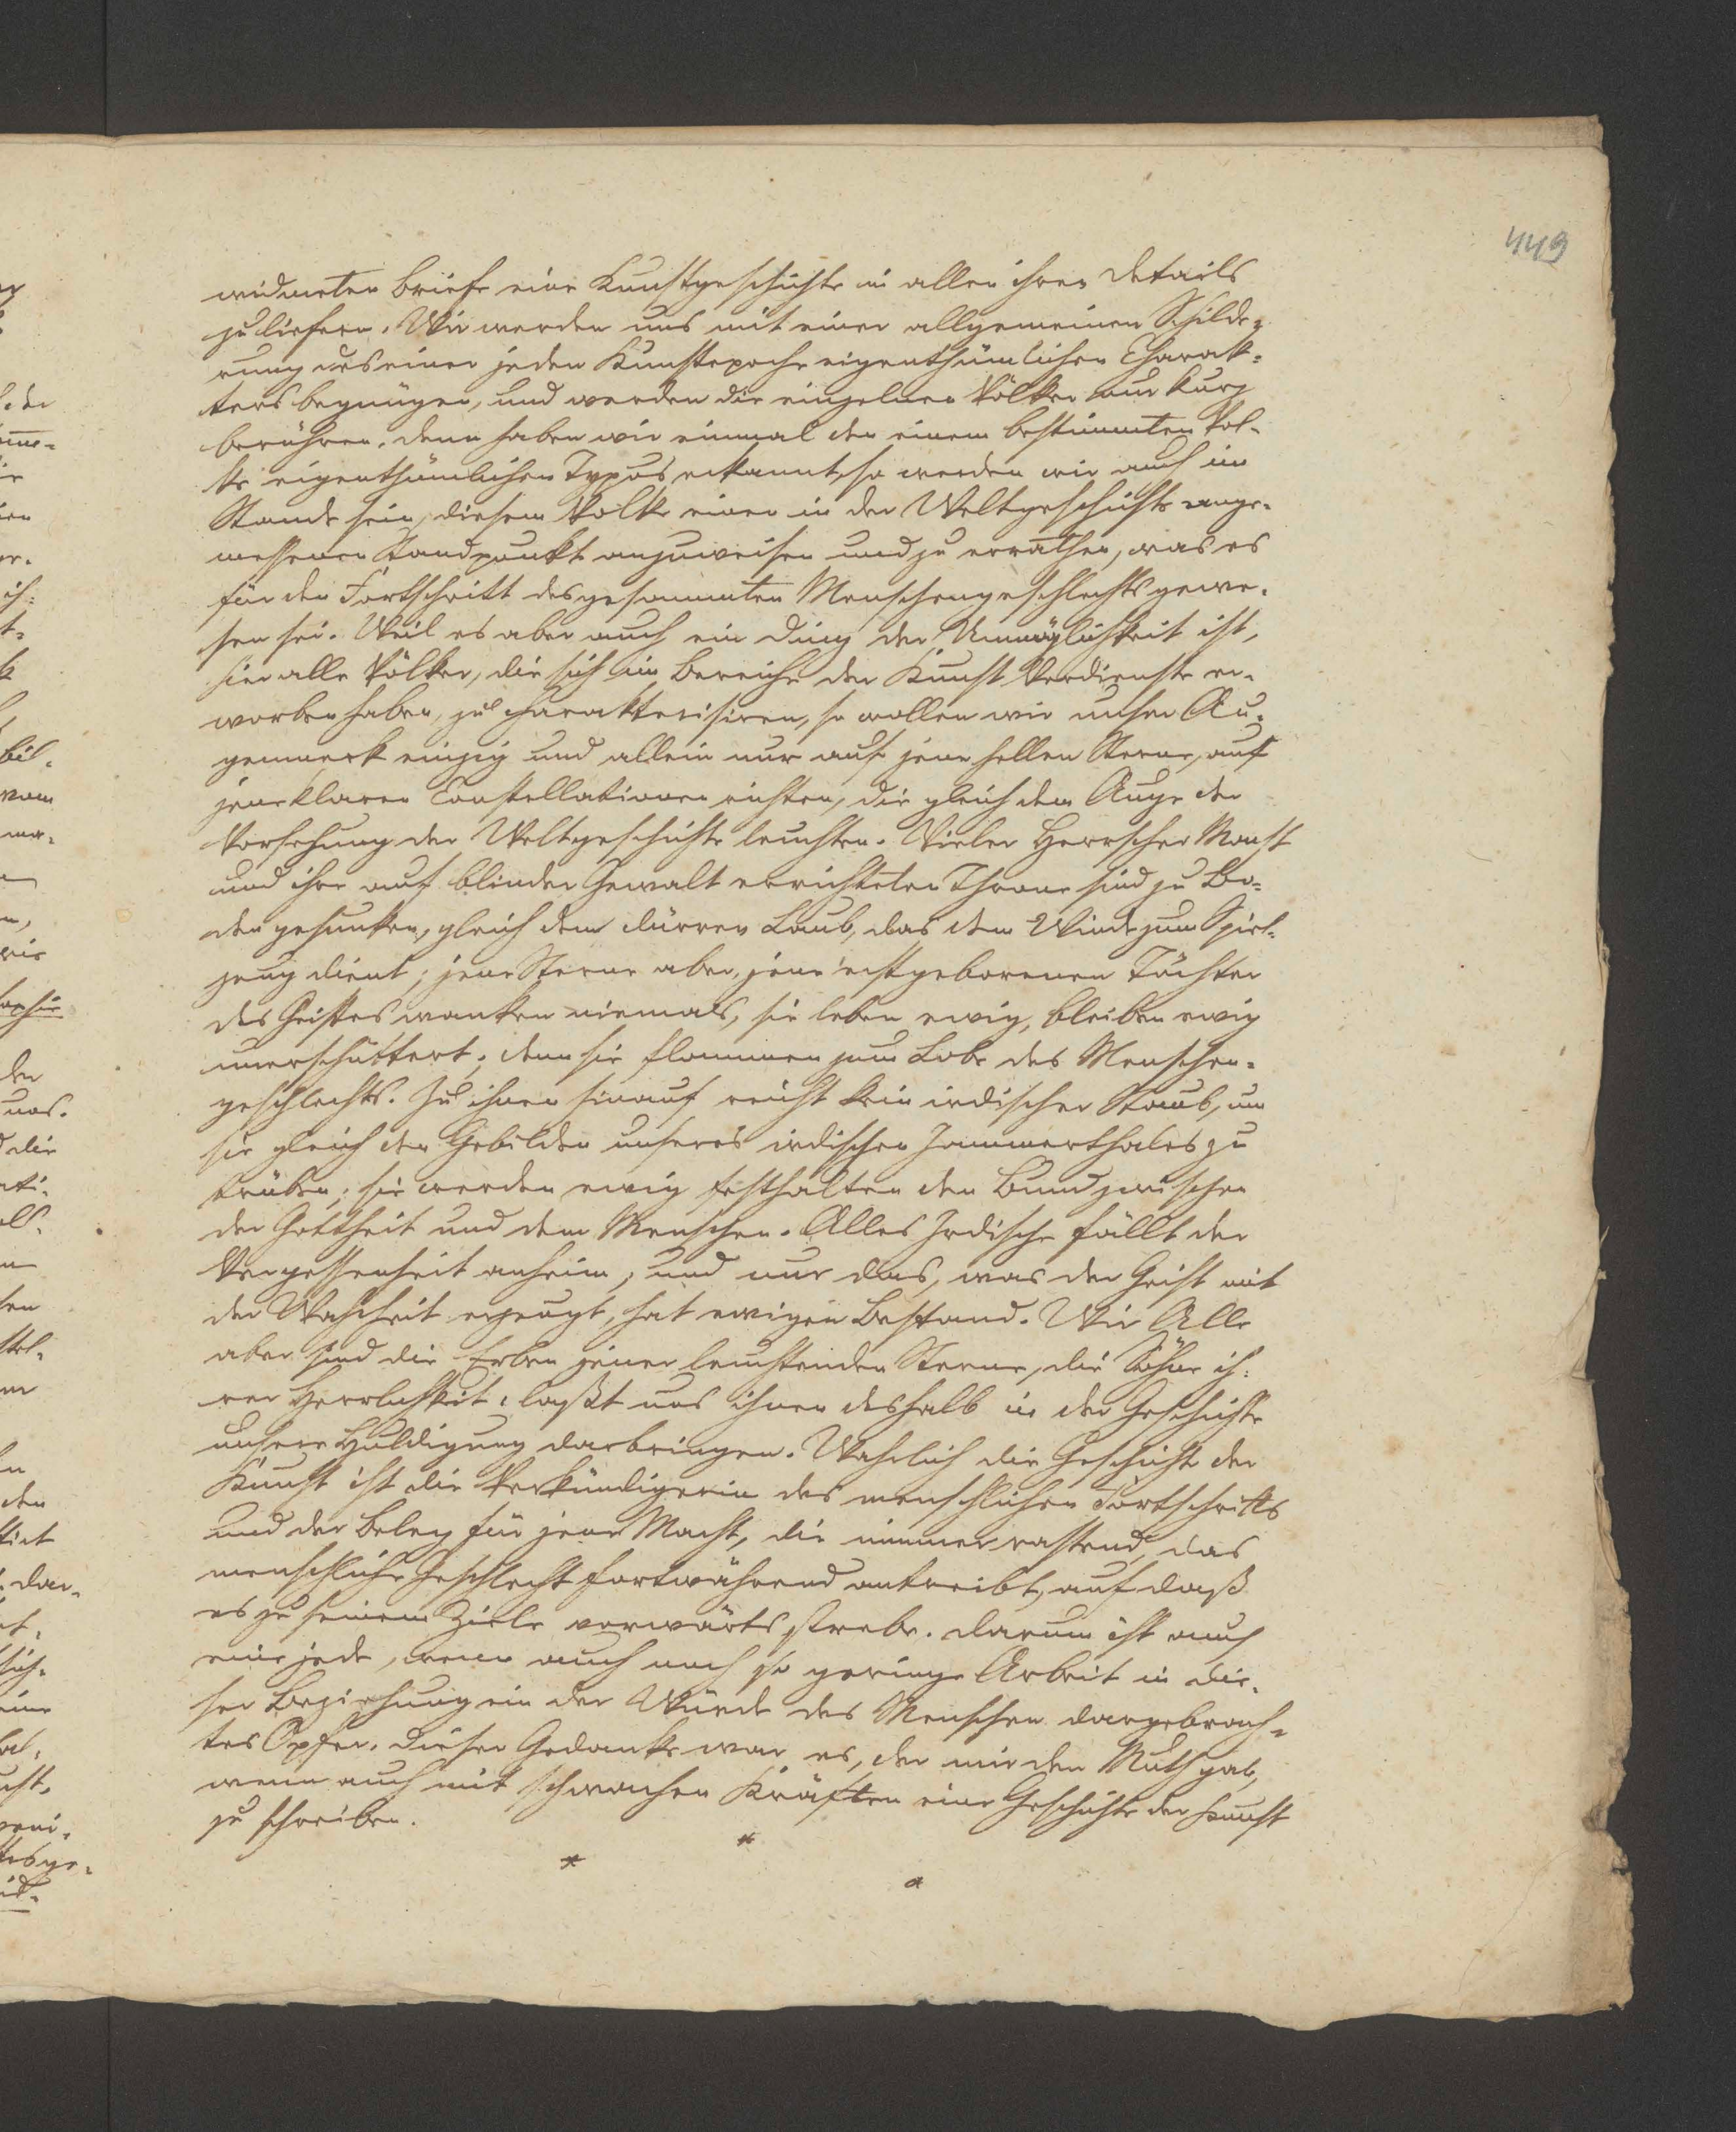 449
widmeten Briefe eine Kunstgeschichte in allen ihren Details
zu liefern. Wir werden uns mit einer allgemeinen Schilde-
rung des einer jeden Kunstepoche eigenthümlichen Charak-
ters begnügen, und werden die einzelnen Völker nur kurz
berühren. Denn haben wir einmal den einem bestimmten Vol-
ke eigenthümlichen Typus erkannt, so werden wir auch im
Stande sein, diesem Volke einen in der Weltgeschichte ange-
messenen Standpunkt anzuweisen und zu errathen, was es
für den Fortschritt des gesammten Menschengeschlechts gewe-
sen sei. Weil es aber auch ein Ding der Unmöglichkeit ist,
hier alle Völker, die sich im Bereiche der Kunst Verdienste er-
worben haben, zu charakterisiren, so wollen wir unser Au-
genmerk einzig und allein nur auf jene hellen Sterne, auf
jene klaren Constellationen richten, die gleich dem Auge der
Vorsehung der Weltgeschichte leuchten. Vieler Herrscher Macht
und ihre auf blinder Gewalt errichteten Throne sind zu Bo-
den gesunken, gleich dem dürren Laub, das dem Winde zum Spiel-
zeug dient; jene Sterne aber, jene erstgeborenen Töchter
des Geistes wanken niemals, sie leben ewig, bleiben ewig
unerschüttert; denn sie flammen zum Lobe des Menschen-
geschlechts. Zu ihnen hinauf reicht kein irdischer Staub, um
sie gleich den Gebilden unseres irdischen Jammerthales zu
trüben; sie werden ewig festhalten den Bund zwischen
der Gottheit und dem Menschen. Alles Irdische fällt der
Vergessenheit anheim, und nur das, was der Geist mit
der Wahrheit erzeugt, hat ewigen Bestand. Wir Alle
aber sind die Erben jener leuchtenden Sterne, die Söhne ih-
rer Herrlichkeit, laßt uns ihnen deshalb in der Geschichte
unsere Huldigung darbringen. Wahrlich die Geschichte der
Kunst ist die Verkündigerin des menschlichen Fortschritts
und der Beleg für jene Macht, die nimmer rastend, das
menschliche Geschlecht fortwährend antreibt, auf daß
es zu seinem Ziele vorwärts strebe. Darum ist auch
eine jede, wenn auch noch so geringe Arbeit in die-
ser Beziehung ein der Würde des Menschen dargebrach-
tes Opfer. Dieser Gedanke war es, der mir den Muth gab,
wenn auch mit schwachen Kräften eine Geschichte der Kunst
zu schreiben.
* * *